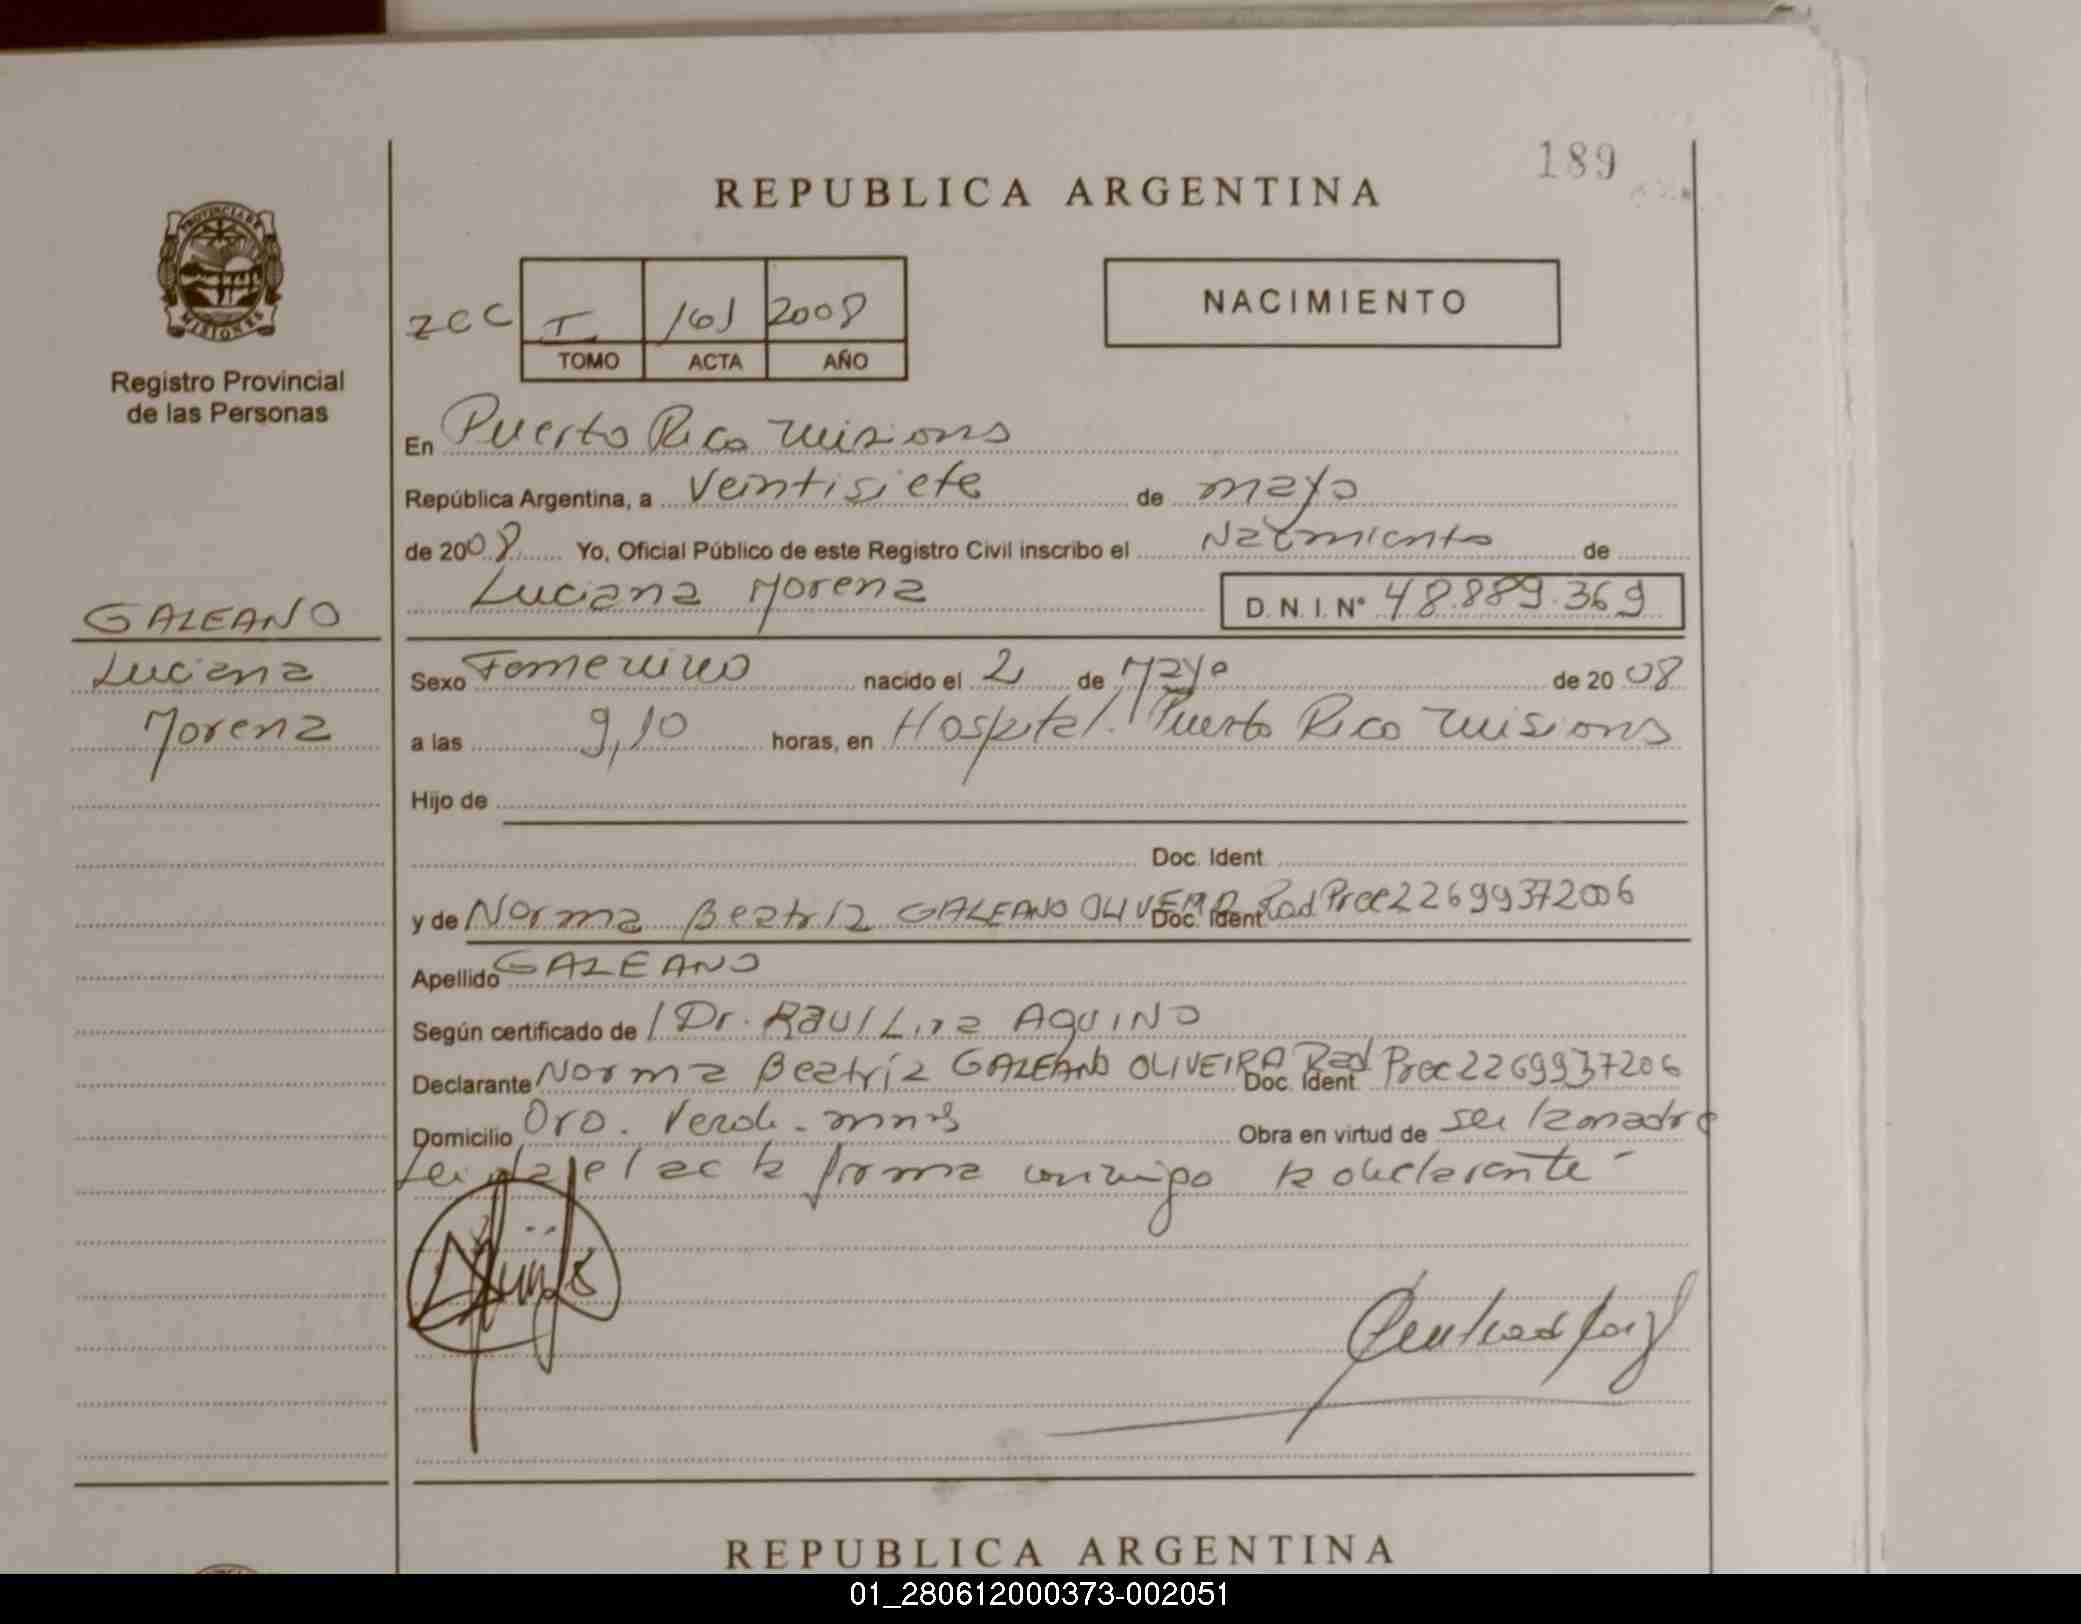 189
REPUBLICA ARGENTINA
PROVINCIA DE
MISIONES
Registro Provincial
de las Personas
NACIMIENTO
ZCC I 161 2008
TOMO ACTA AÑO
En Puerto Rico Misiones
República Argentina, a Veintisiete de mayo
de 2008 Yo, Oficial Público de este Registro Civil inscribo el Nacimiento de
Luciana Morena D. N. I. Nº 48.889.369
GALEANO
Luciana
Morena
Sexo Femenino nacido el 2 de Mayo de 20 08
a las 9,10 horas, en Hospital. Puerto Rico Misiones
Hijo de
Doc. Ident.
y de Norma Beatriz GALEANO OLIVEIRA Doc. Ident. Rad Prec 22699372006
Apellido GALEANO
Según certificado de Dr. Raul AQUINO
Declarante Norma Beatríz GALEANO OLIVEIRA Doc. Ident. Rad Prec 2269937206
Domicilio Oro. Verde - mnes Obra en virtud de ser la madre
Leida el acta firma conmigo la declarante -
REPUBLICA ARGENTINA
01_280612000373-002051